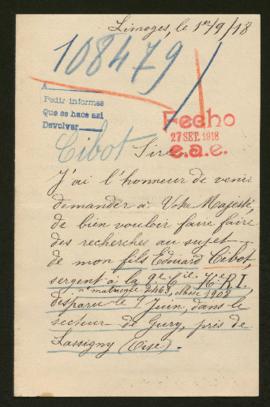 Limoges, le 1er/9/18
108479
A
Pedir informes
Que se hace así
Devolver
Fecho
27 SET. 1918
e.a.e.
Cibot
Sire
J'ai l'honneur de venir
demander à Votre Majesté
de bien vouloir faire faire
des recherches au sujet
de mon fils Edouard Cibot,
sergent à la 9e Cie R.I.
n° matricule classe 1908
disparu le 9 Juin, dans le
secteur de Gury, près de
Lassigny (Oise).